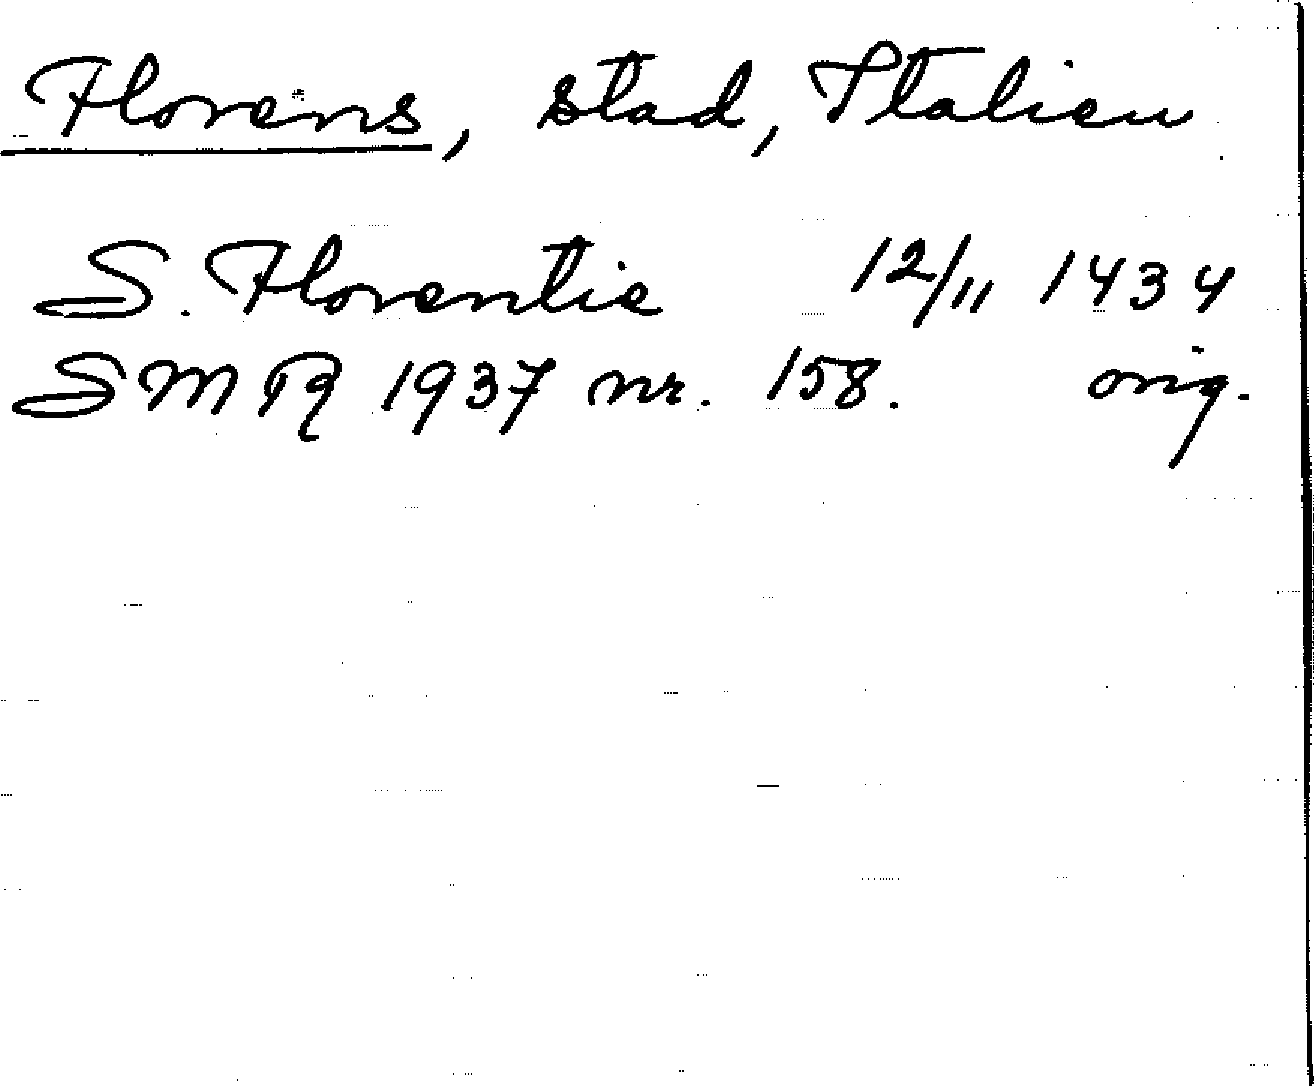 Florens, stad, Italien
S. Florentie 12/11 1434
SMR 1937 nr. 158. orig.